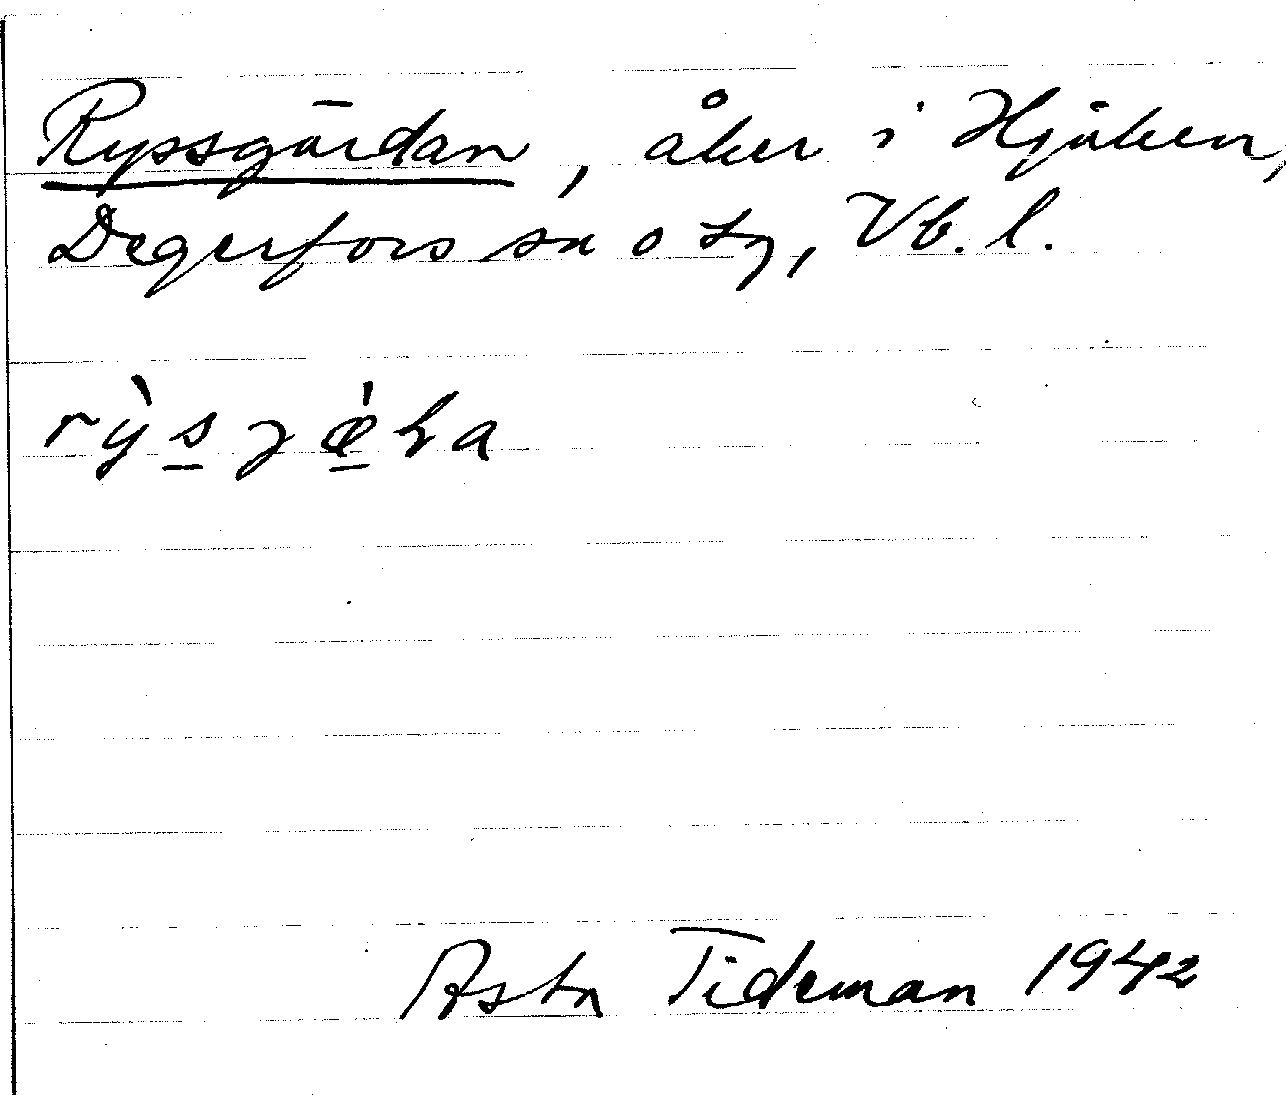 Ryssgärdan, åker i Hjåken,
Degerfors sn o tg, Vb. l.
Asta Tideman 1942